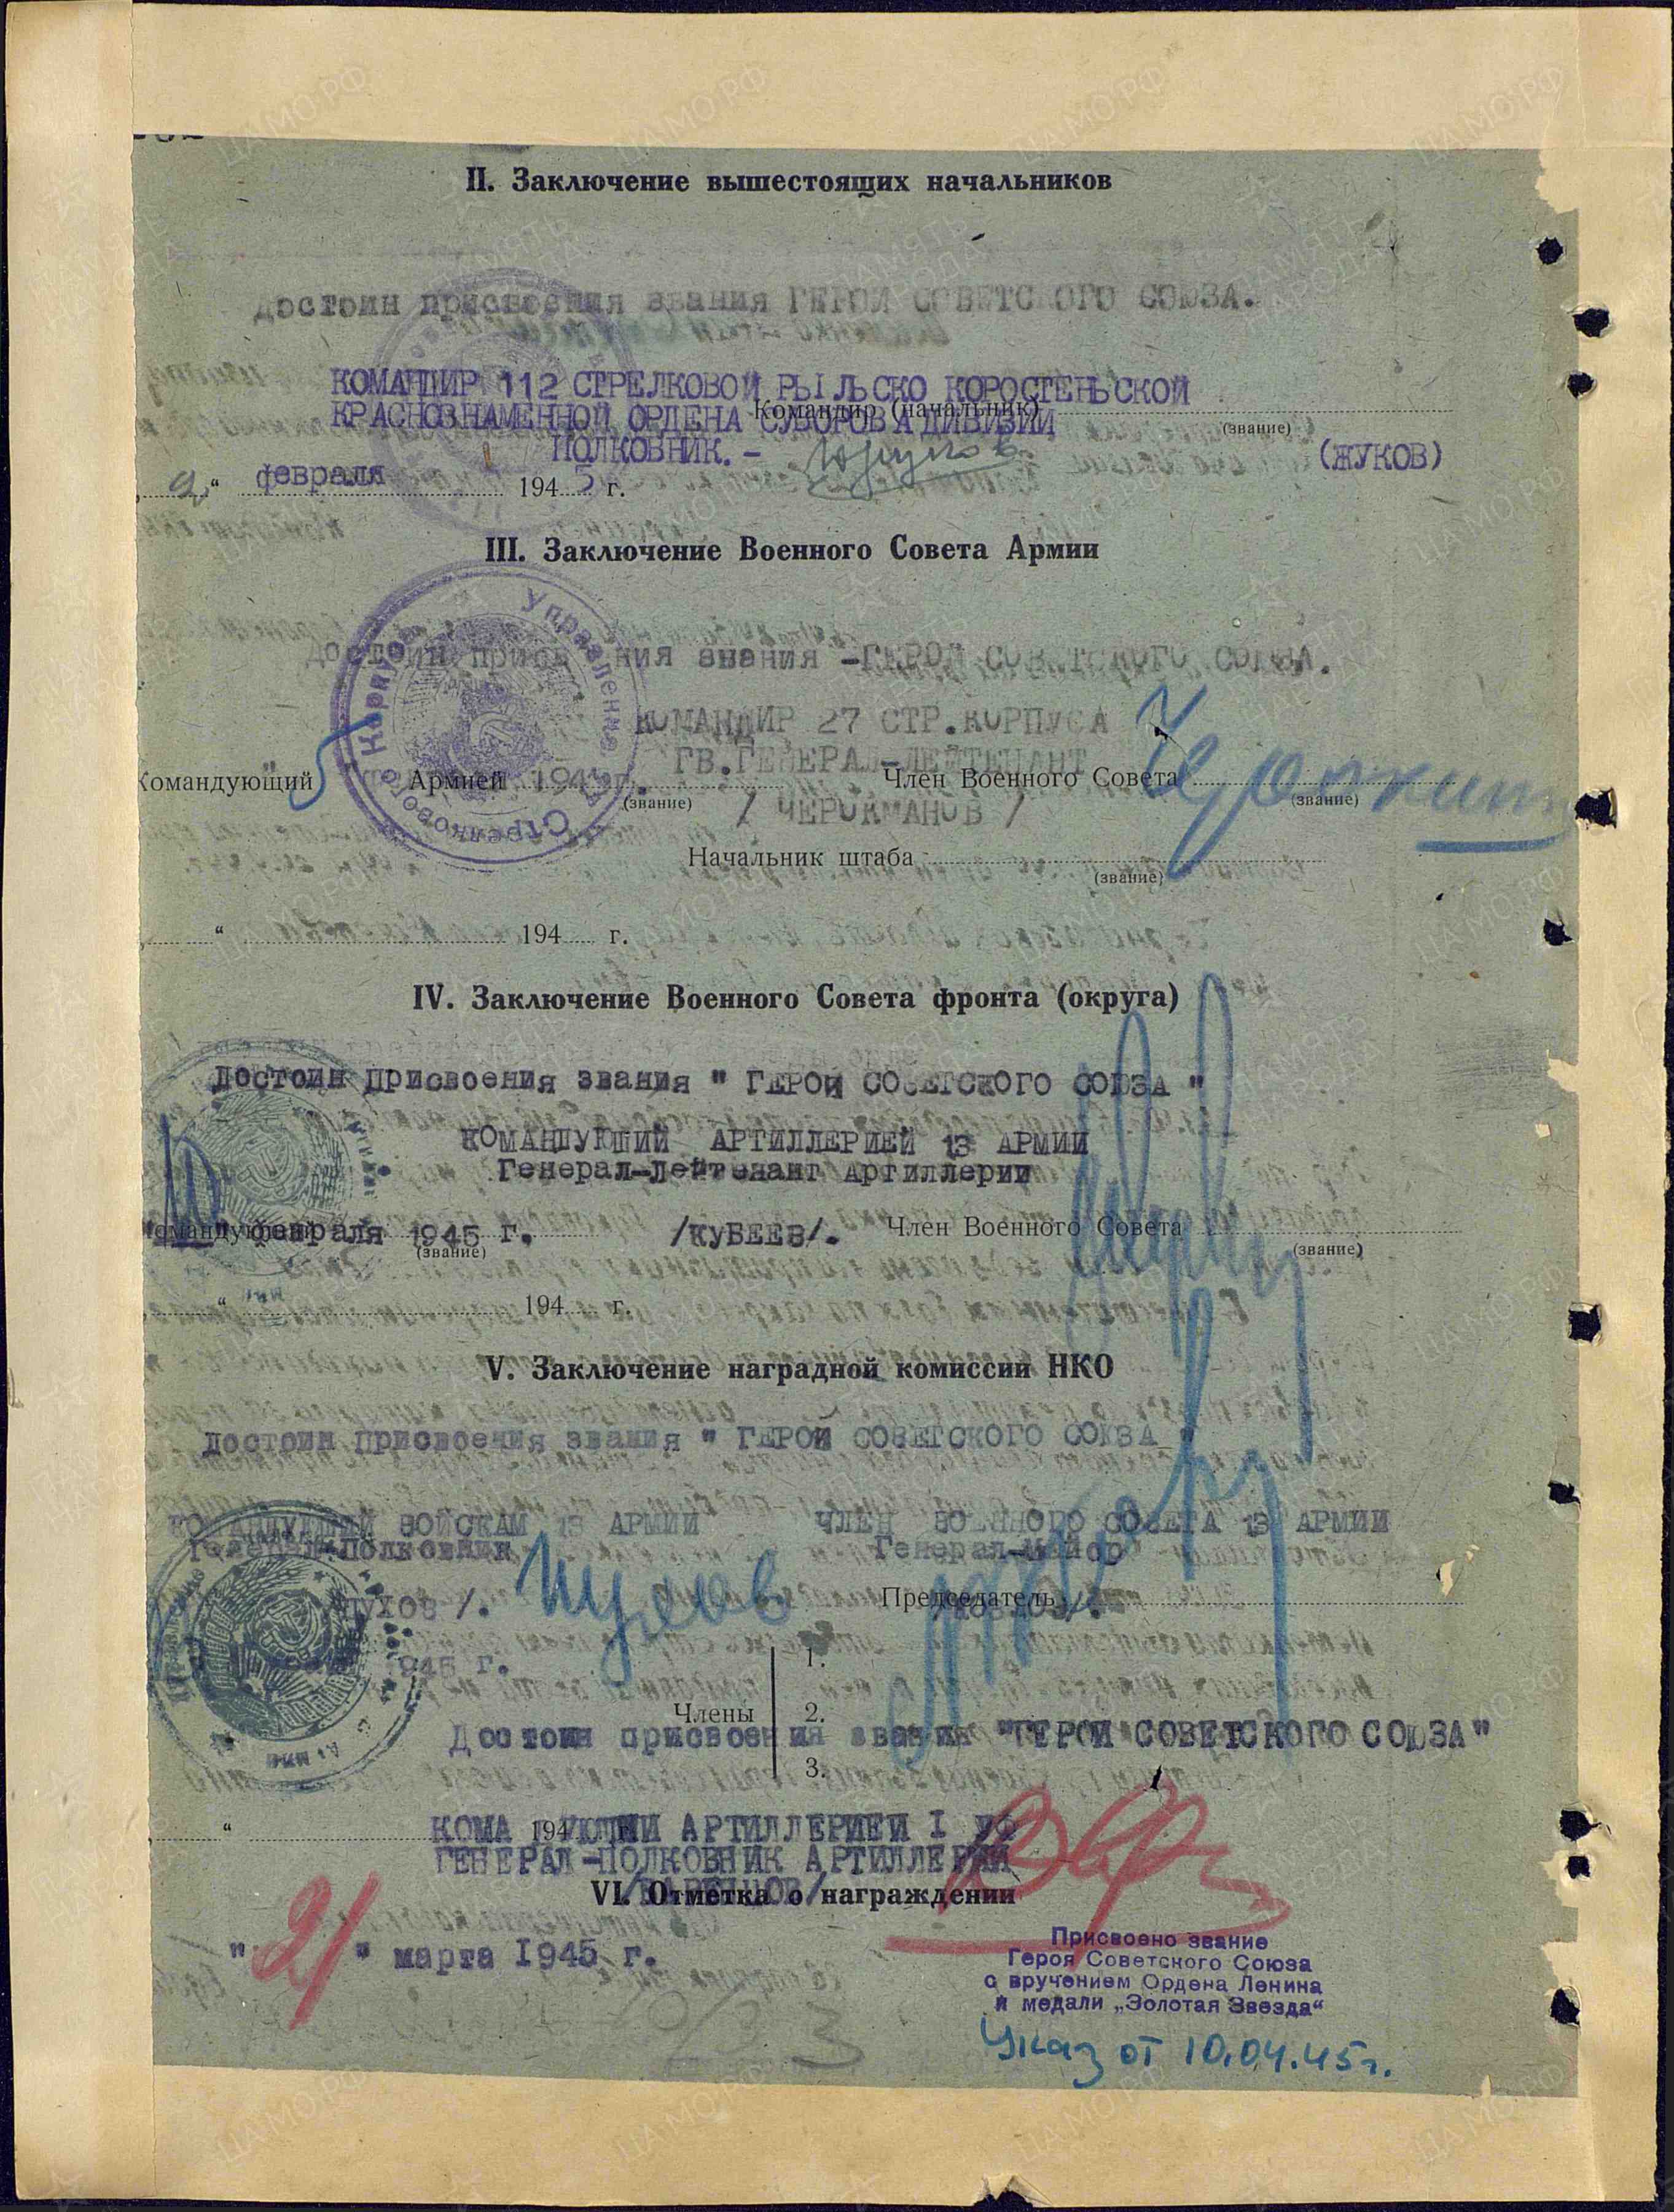 II. Заключение вышестоящих начальников
достоин присвоения звания ГЕРОЙ СОВЕТСКОГО СОЮЗА.
КОМАНДИР 112 СТРЕЛКОВОЙ РЫЛЬСКО КОРОСТЕНЬСКОЙ
КРАСНОЗНАМЕННОЙ ОРДЕНА СУВОРОВА ДИВИЗИИ
Командир (начальник)
(звание)
ПОЛКОВНИК. - (ЖУКОВ)
" февраля 1945 г.
III. Заключение Военного Совета Армии
Достоин присвоения звания -ГЕРОЯ СОВЕТСКОГО СОЮЗА.
КОМАНДИР 27 СТР.КОРПУСА
ГВ.ГЕНЕРАЛ-ЛЕЙТЕНАНТ
Управление Стрелкового Корпуса
Командующий Армией 1945 г. Член Военного Совета
(звание) (звание)
/ ЧЕРОКМАНОВ /
Начальник штаба
(звание)
" 194 г.
IV. Заключение Военного Совета фронта (округа)
Достоин присвоения звания " ГЕРОЙ СОВЕТСКОГО СОЮЗА "
КОМАНДУЮЩИЙ АРТИЛЛЕРИЕЙ 13 АРМИИ
Генерал-Лейтенант Артиллерии
Командующий
февраля 1945 г. /КУБЕЕВ/. Член Военного Совета
(звание) (звание)
" 194 г.
V. Заключение наградной комиссии НКО
достоин присвоения звания " ГЕРОЙ СОВЕТСКОГО СОЮЗА "
КОМАНДУЮЩИЙ ВОЙСКАМ 13 АРМИИ ЧЛЕН ВОЕННОГО СОВЕТА 13 АРМИИ
Генерал-Полковник Генерал-Майор
ПУХОВ /. Председатель /КОЗЛОВ/.
1945 г.
1.
Члены 2.
Достоин присвоения звания "ГЕРОЙ СОВЕТСКОГО СОЮЗА"
3.
" 194
КОМАНДУЮЩИЙ АРТИЛЛЕРИЕЙ I УФ
ГЕНЕРАЛ-ПОЛКОВНИК АРТИЛЛЕРИИ
/ВАРЕНЦОВ/
VI. Отметка о награждении
"21" марта 1945 г.
Присвоено звание
Героя Советского Союза
с вручением Ордена Ленина
и медали „Золотая Звезда"
Указ от 10.04.45г.